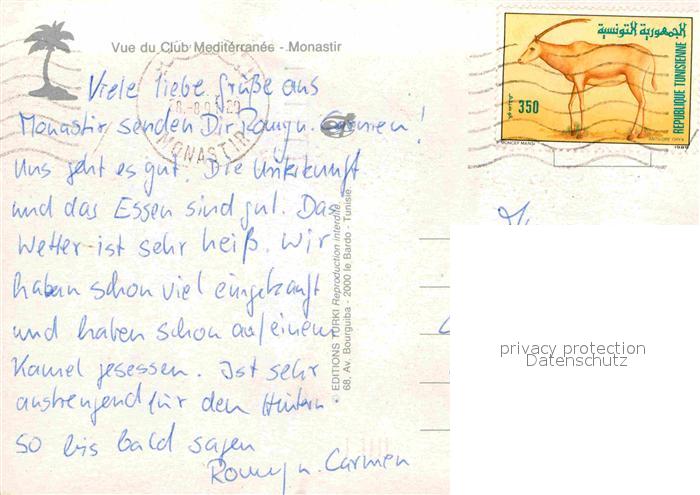 Vue du Club Mediterranée - Monastir
Viele liebe Grüße aus
Monastir senden Dir Romy u. Carmen!
Uns geht es gut. Die Unterkunft
und das Essen sind gut. Das
Wetter ist sehr heiß. Wir
haben schon viel eingekauft
und haben schon auf einem
Kamel gesessen. Ist sehr
anstrengend für den Hintern.
So bis bald sagen
Romy u. Carmen
MONASTIR
© EDITIONS TURKI Reproduction interdite.
68, Av. Bourguiba - 2000 le Bardo - Tunisie.
الجمهورية التونسية
REPUBLIQUE TUNISIENNE
350
privacy protection
Datenschutz